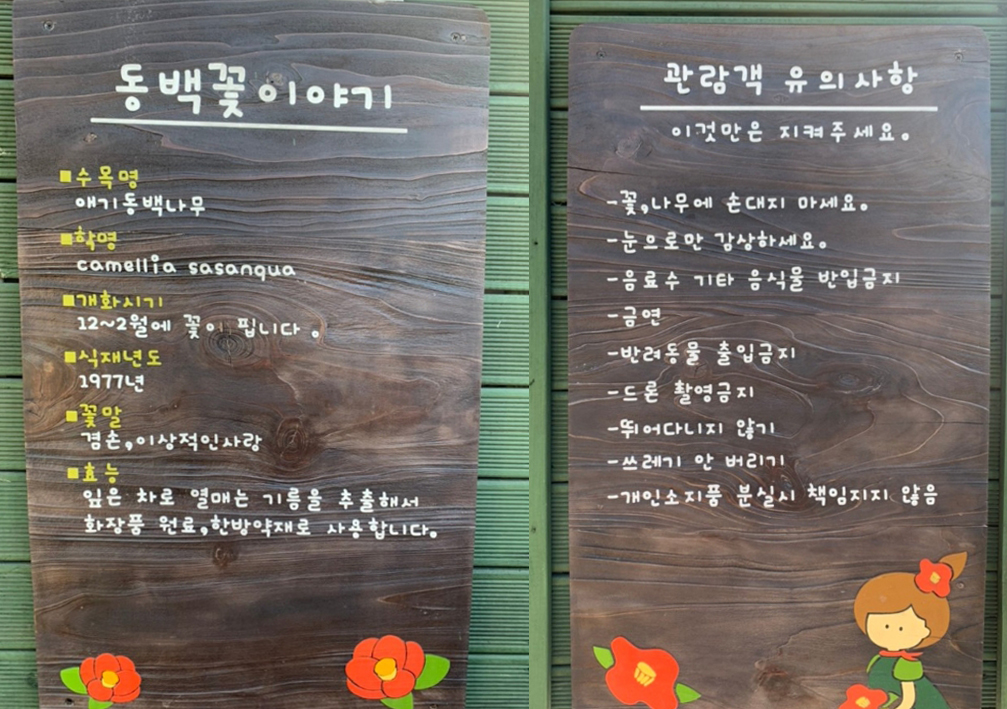 동백꽃이야기
■수목명
애기동백나무
■학명
camellia sasanqua
■개화시기
12~2월에 꽃이 핍니다.
■식재년도
1977년
■꽃말
겸손,이상적인사랑
■효능
잎은 차로 열매는 기름을 추출해서
화장품 원료,한방약재로 사용합니다.
관람객 유의사항
이것만은 지켜주세요.
-꽃,나무에 손대지 마세요.
-눈으로만 감상하세요.
-음료수 기타 음식물 반입금지
-금연
-반려동물 출입금지
-드론 촬영금지
-뛰어다니지 않기
-쓰레기 안 버리기
-개인소지품 분실시 책임지지 않음